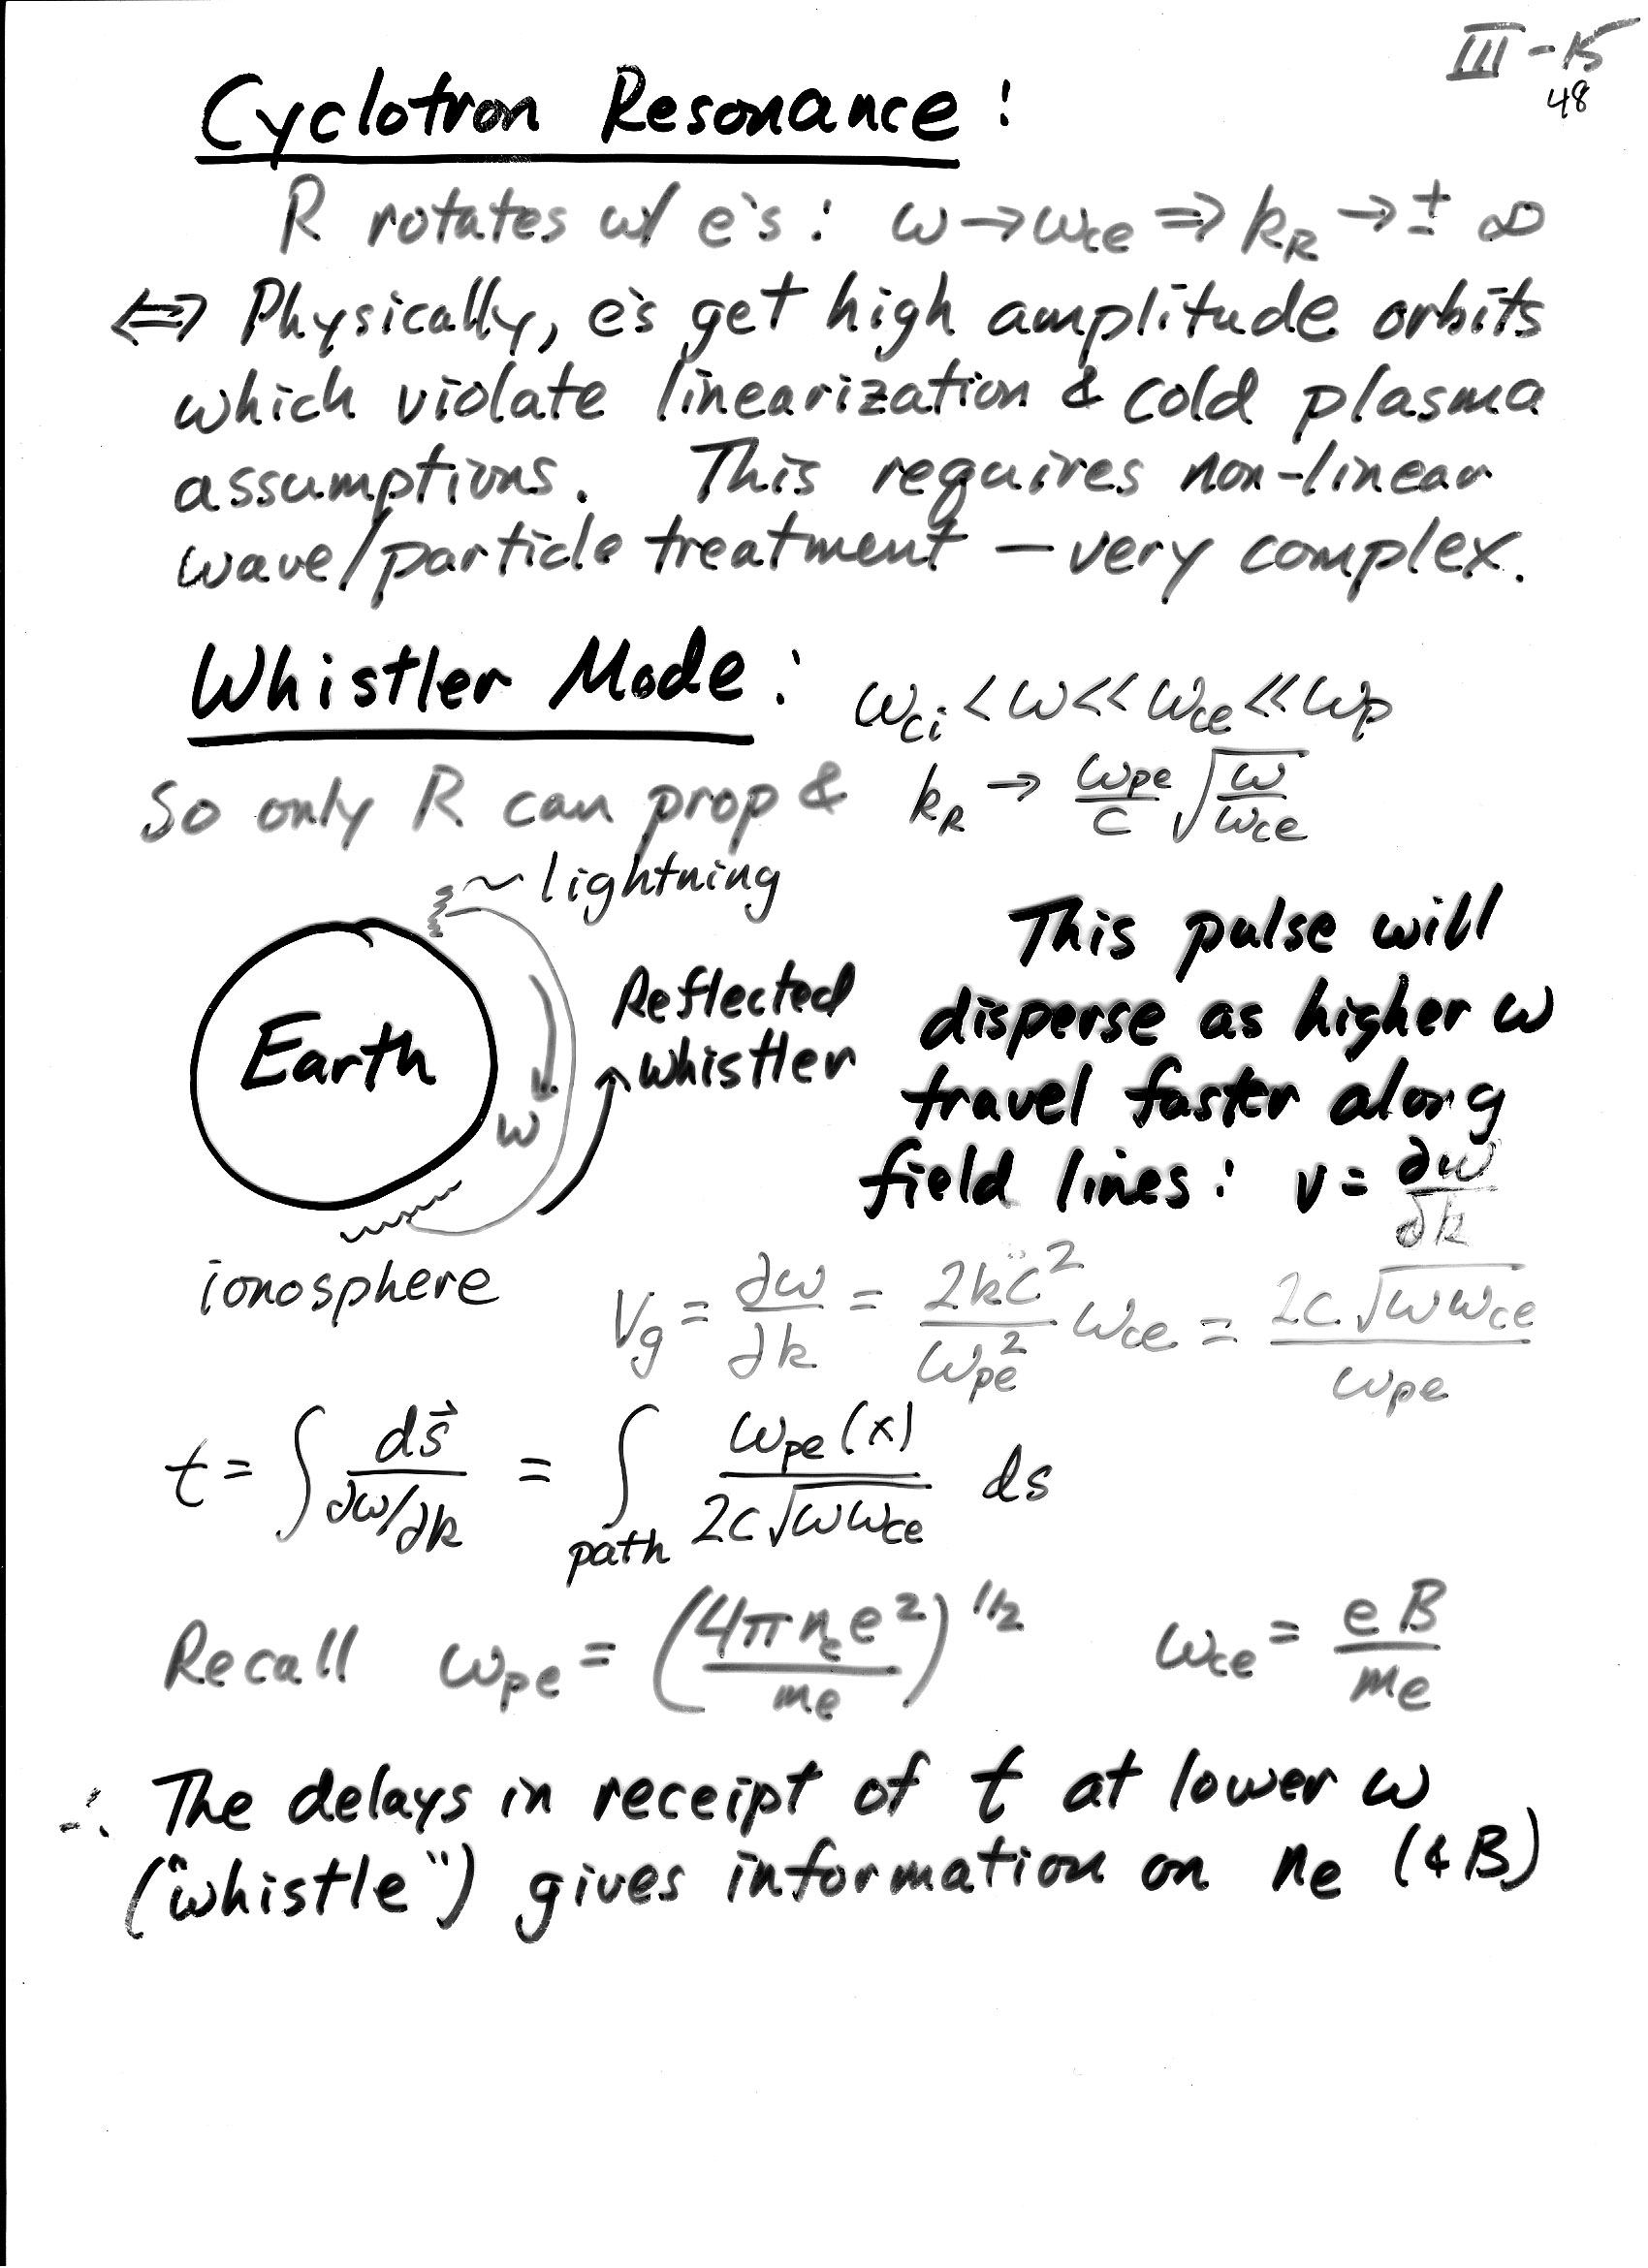 III - 15
48
Cyclotron Resonance :
R rotates w/ e's : ω → ω_ce ⇒ k_R → ± ∞
⇔ Physically, e's get high amplitude orbits
which violate linearization & cold plasma
assumptions. This requires non-linear
wave/particle treatment — very complex.
Whistler Mode : ω_ci < ω << ω_ce << ω_p
So only R can prop & k_R → ω_pe/c √(ω/ω_ce)
~ lightning
Earth
ω
Reflected
whistler
ionosphere
This pulse will
disperse as higher ω
travel faster along
field lines : v = ∂ω/∂k
V_g = ∂ω/∂k = 2kc²/ω_pe² ω_ce = 2c√(ωω_ce)/ω_pe
t = ∫ ds⃗/(∂ω/∂k) = ∫_path ω_pe(x)/(2c√(ωω_ce)) ds
Recall ω_pe = (4πn_e e²/m_e)^1/2 ω_ce = eB/m_e
∴ The delays in receipt of t at lower ω
("whistle") gives information on n_e (& B)